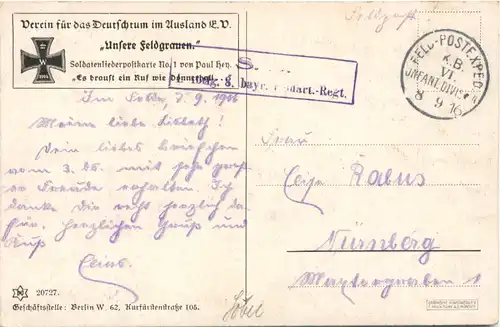 Verein für das Deutschtum im Ausland E.V.
„Unsere Feldgrauen."
Soldatenliederpostkarte No. 1 von Paul Hey.
„Es braust ein Ruf wie Donnerhall
1914
S.
8. bayr. Feldart.-Regt.
Feldpost
FELD-POSTEXPED.
K.B.
VI.
INFANT.DIVISION
8 9 16
Im Felde, 7.9.1916
Meine liebe Lisbeth!
Dein liebes Briefchen
vom 3. ds. mit sehr
Freude erhalten. Ich
danke Dir recht herzlich da-
für. Herzlichen Gruß und
Kuß
Frau
Rabus
Nürnberg
20727.
Geschäftsstelle: Berlin W. 62, Kurfürstenstraße 105.